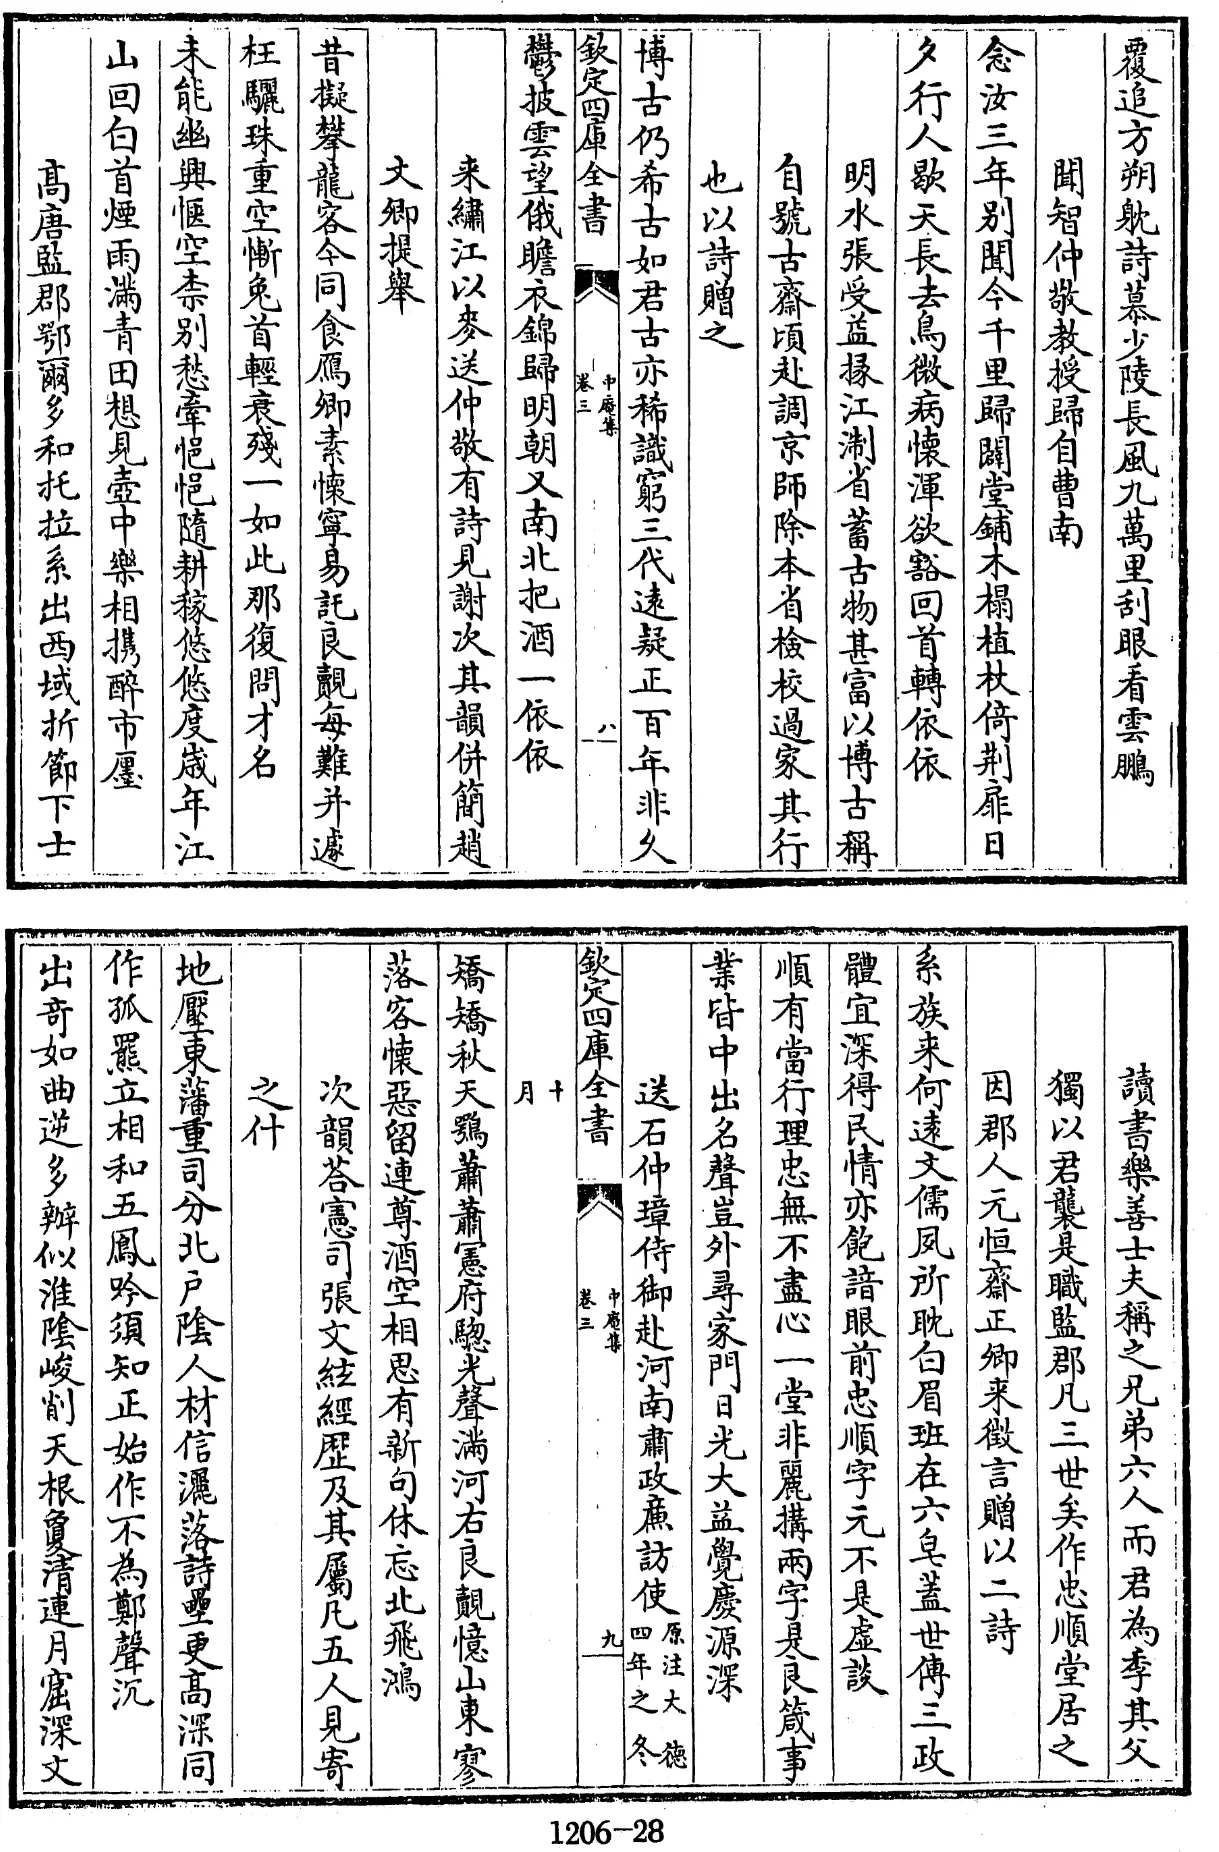 覆追方朔躭詩慕少陵長風九萬里刮眼看雲鵬
聞智仲敬教授歸自曹南
念汝三年别聞今千里歸闢堂鋪木榻植杖倚荆扉日
夕行人歇天長去鳥微病懷渾欲豁回首轉依依
明水張受益掾江淛省蓄古物甚富以博古稱
自號古齋頃赴調京師除本省檢校過家其行
也以詩贈之
博古仍希古如君古亦稀識窮三代遠疑正百年非久
欽定四庫全書
中庵集
卷三
八
鬱披雲望俄瞻衣錦歸明朝又南北把酒一依依
来繡江以麥送仲敬有詩見謝次其韻併簡趙
文卿提舉
昔擬攀龍客今同食鴈卿素懷寧易託良覿每難并遽
枉驪珠重空慚兔首輕衰殘一如此那復問才名
未能幽興愜空柰别愁牽悒悒隨耕稼悠悠度歲年江
山回白首煙雨滿青田想見壺中樂相携醉市廛
髙唐監郡鄂爾多和托拉系出西域折節下士
讀書樂善士夫稱之兄弟六人而君為季其父
獨以君襲是職監郡凡三世矣作忠順堂居之
因郡人元恒齋正卿来徵言贈以二詩
系族来何遠文儒夙所耽白眉班在六皂蓋世傳三政
體宜深得民情亦飽諳眼前忠順字元不是虚談
順有當行理忠無不盡心一堂非麗搆兩字是良箴事
業皆中出名聲豈外尋家門日光大益覺慶源深
送石仲璋侍御赴河南肅政廉訪使原注大德
四年之冬
欽定四庫全書
中庵集
卷三
九
十
月
矯矯秋天鶚蕭蕭憲府驄光聲滿河右良覿憶山東寥
落客懷惡留連尊酒空相思有新句休忘北飛鴻
次韻荅憲司張文紘經歴及其屬凡五人見寄
之什
地壓東藩重司分北户隂人材信灑落詩壘更髙深同
作孤羆立相和五鳳吟須知正始作不為鄭聲沉
出竒如曲逆多辦似淮隂峻削天根敻清連月窟深文
1206-28